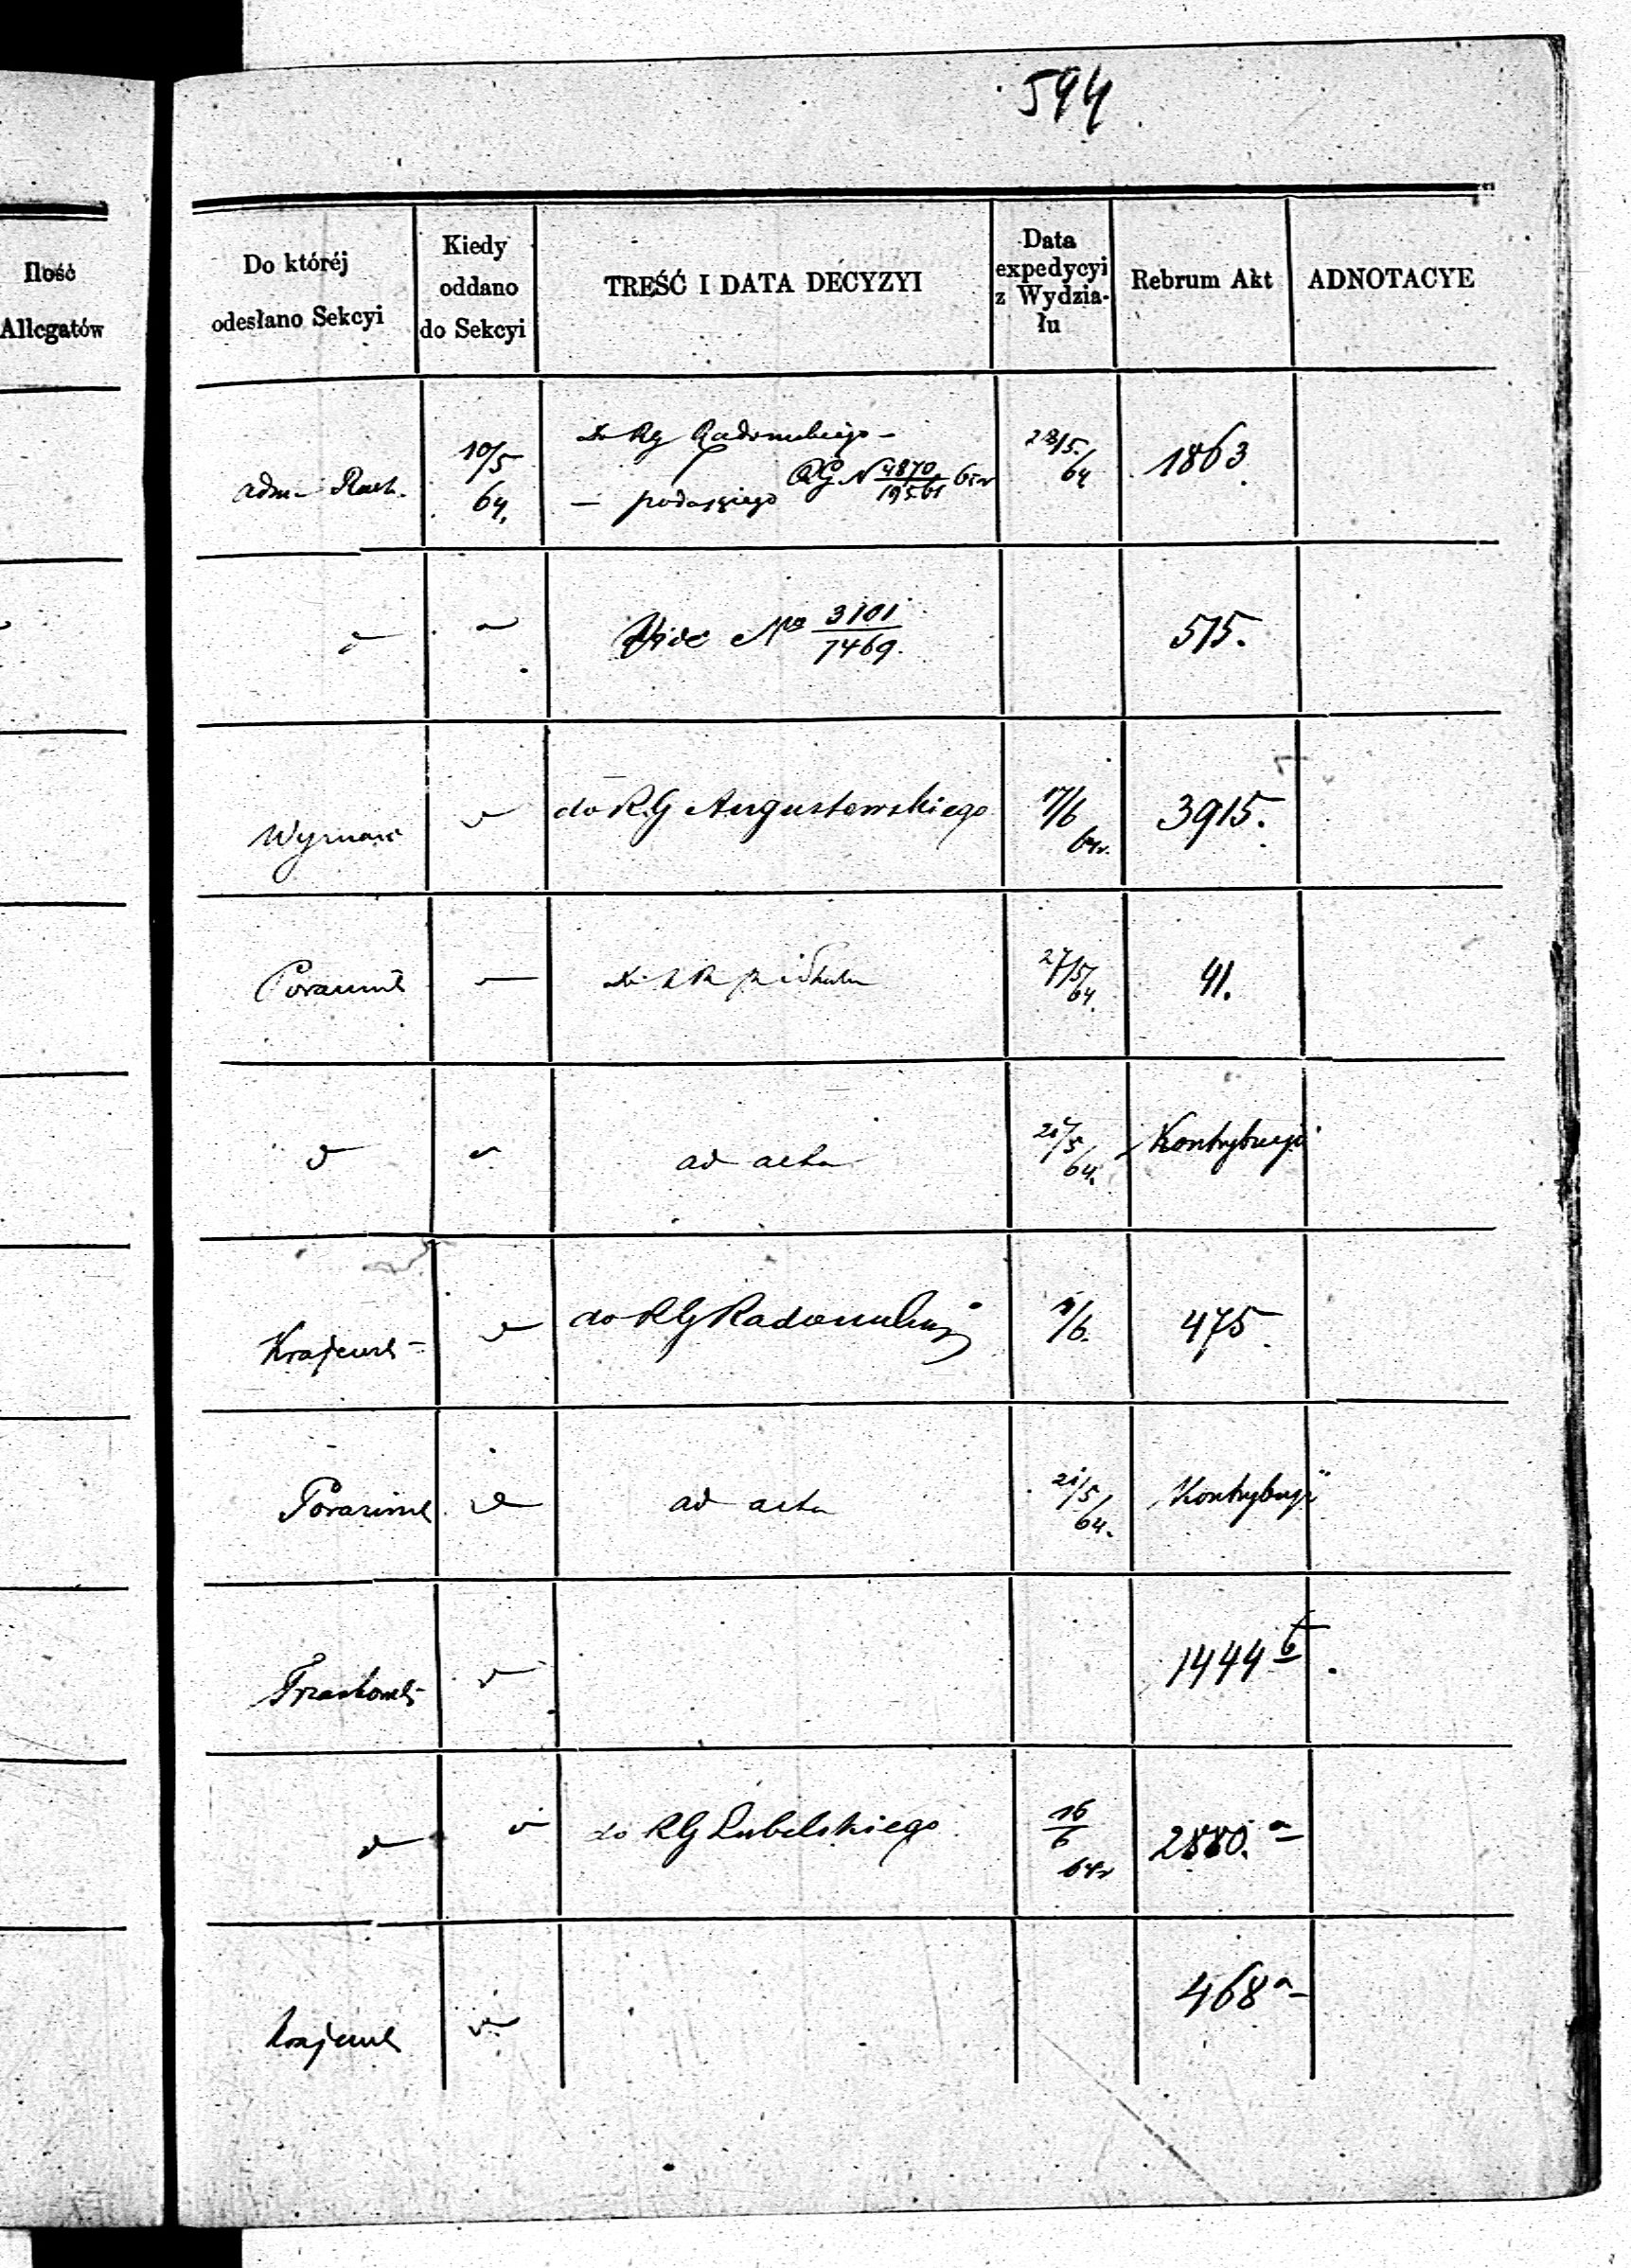 594
Ilość
Allegatów
Do któréj
odesłano Sekcyi
Kiedy
oddano
do Sekcyi
TREŚĆ I DATA DECYZYI
Data
expedycyi
z Wydzia-
łu
Rebrum Akt
ADNOTACYE
adm. Rach.
10/5
64.
Do RG Radomskiego –
– podaszgiego
RG. N 4870/19561 63r
28/5.
64
1863
Vide Nro 3101/7469.
515.
do RG Augustowskiego
17/6
64r.
3915.
27/5/
64.
41.
ad acta
21/5/
64.
Kontrybucyi
Krajews
do RG Radomskiego
4/6.
475.
ad acta
21/5/
64.
Kontrybucyi
1444 b
do RG Lubelskiego
16/6
64r
2880. a
Krajews
468 a